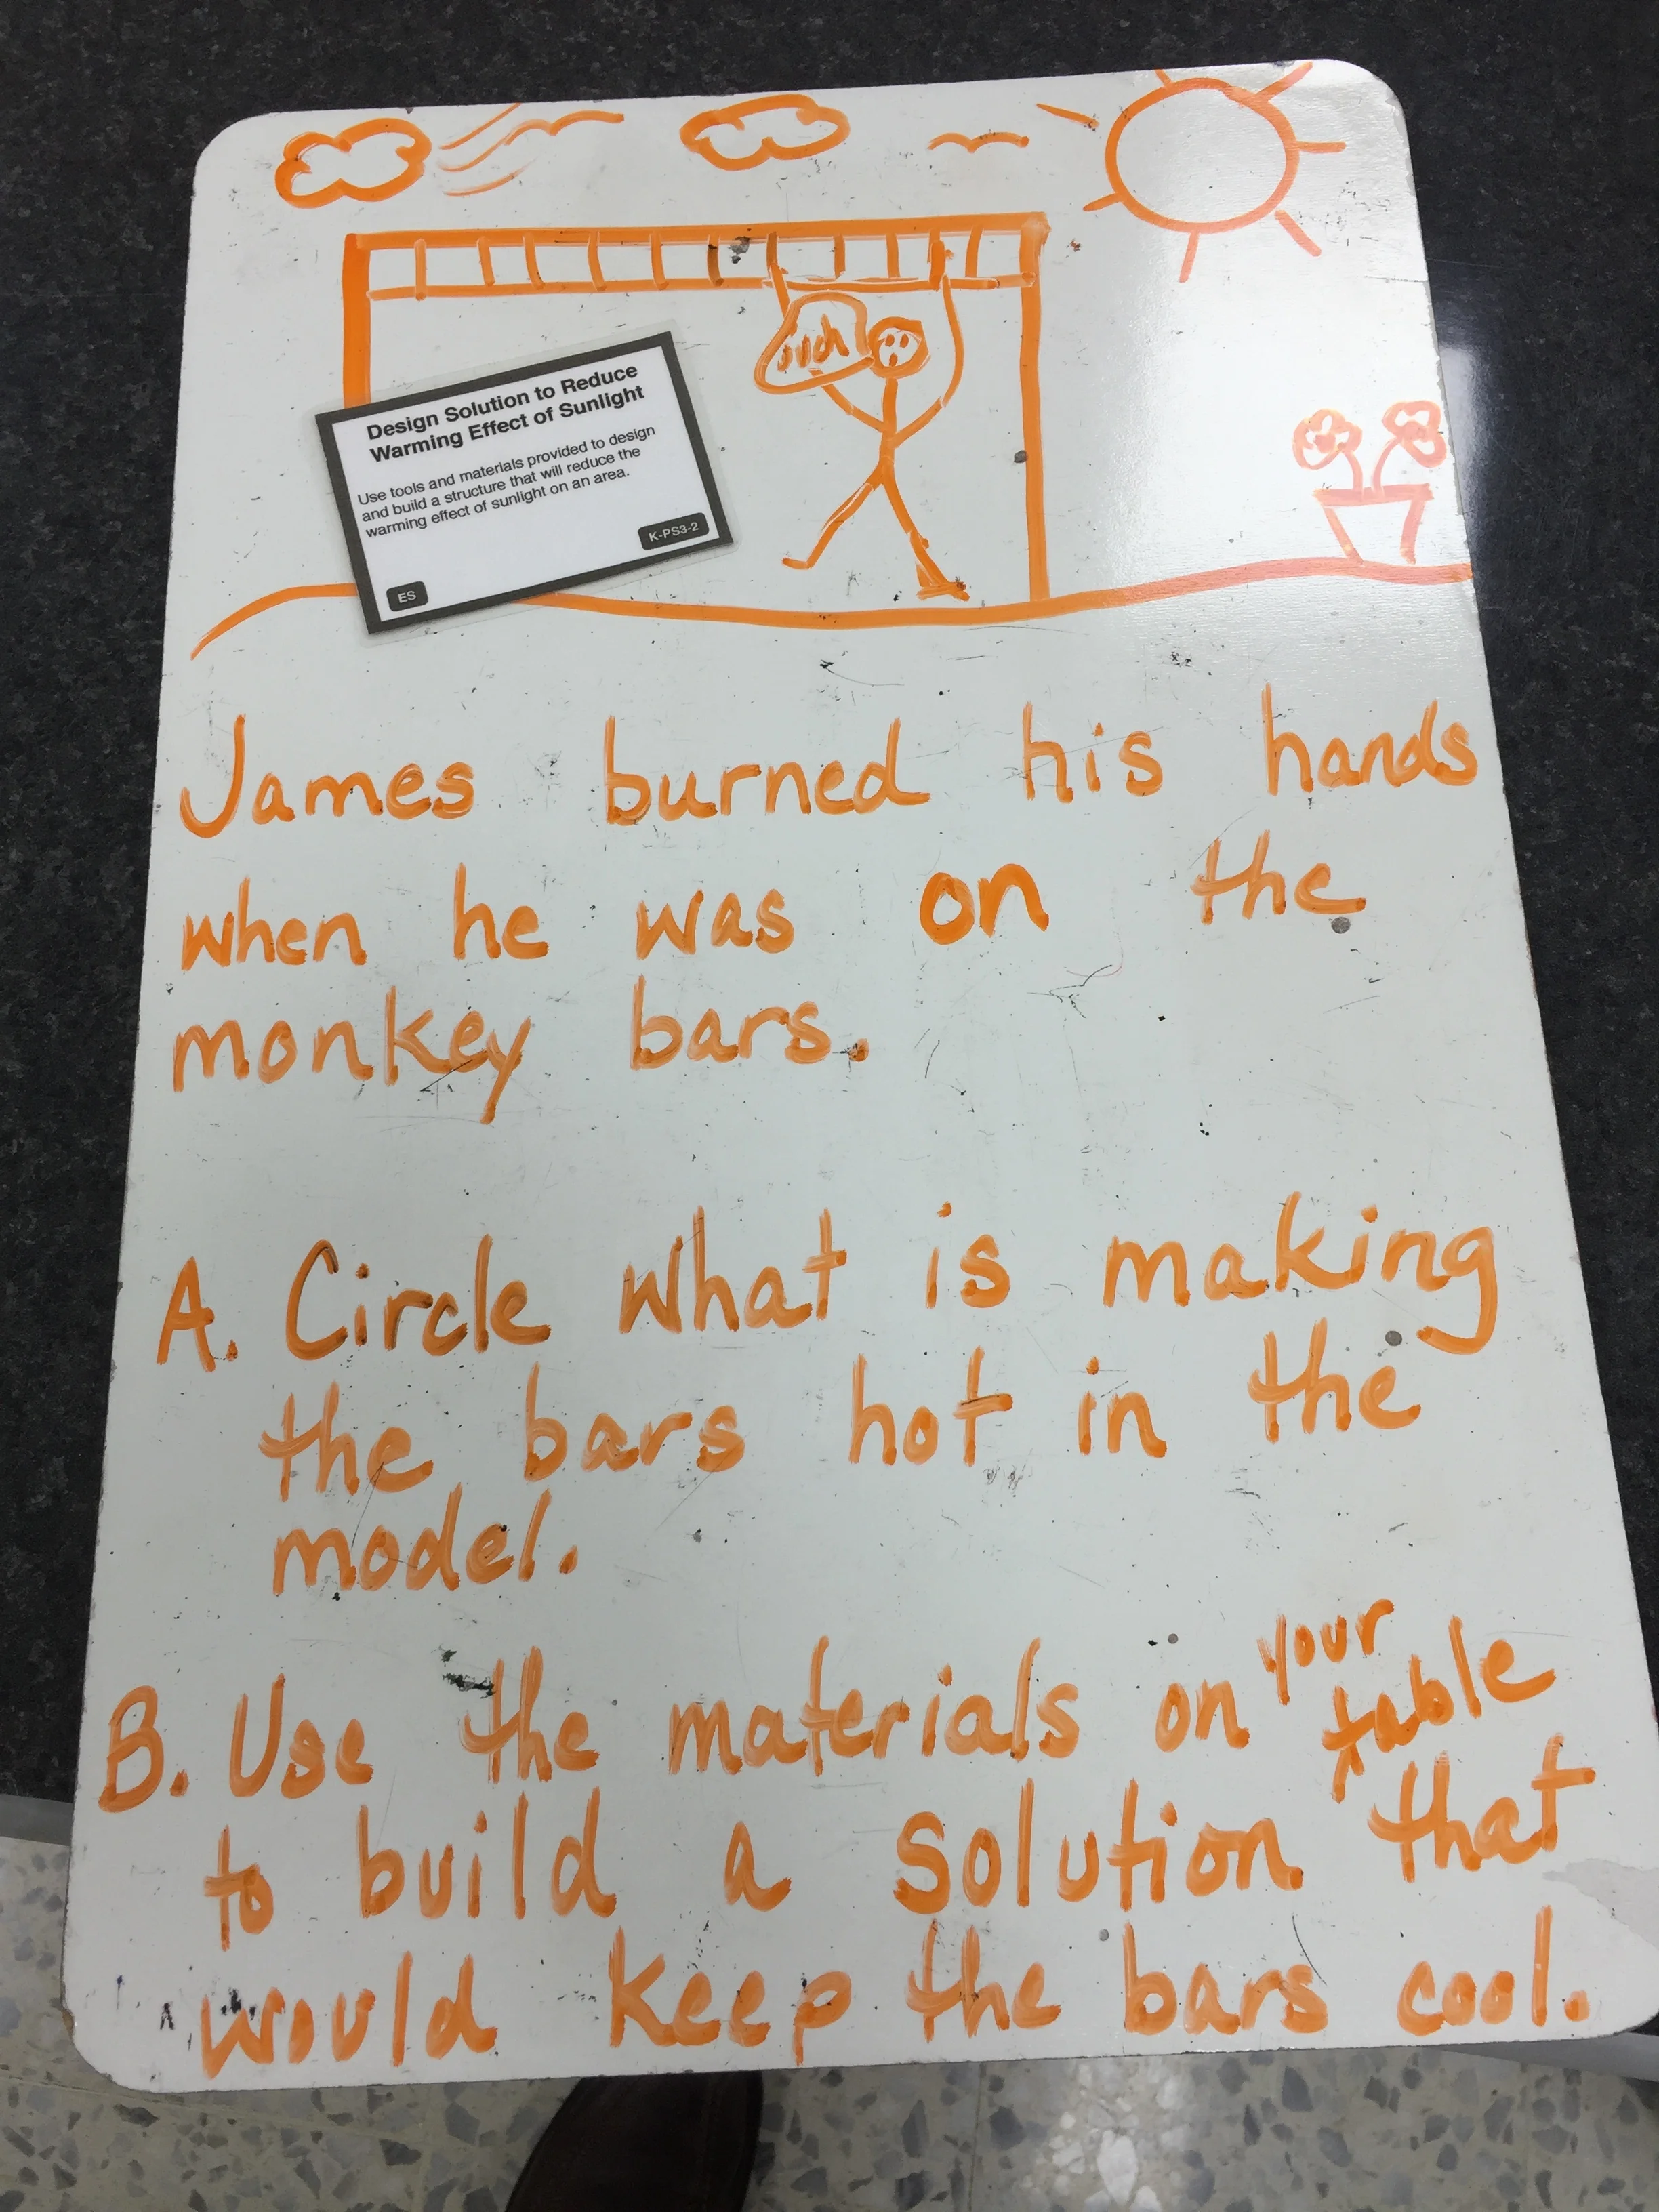 ouch
Design Solution to Reduce
Warming Effect of Sunlight
Use tools and materials provided to design
and build a structure that will reduce the
warming effect of sunlight on an area.
K-PS3-2
ES
James burned his hands
when he was on the
monkey bars.
A. Circle what is making
the bars hot in the
model.
B. Use the materials on your table
to build a solution that
would keep the bars cool.